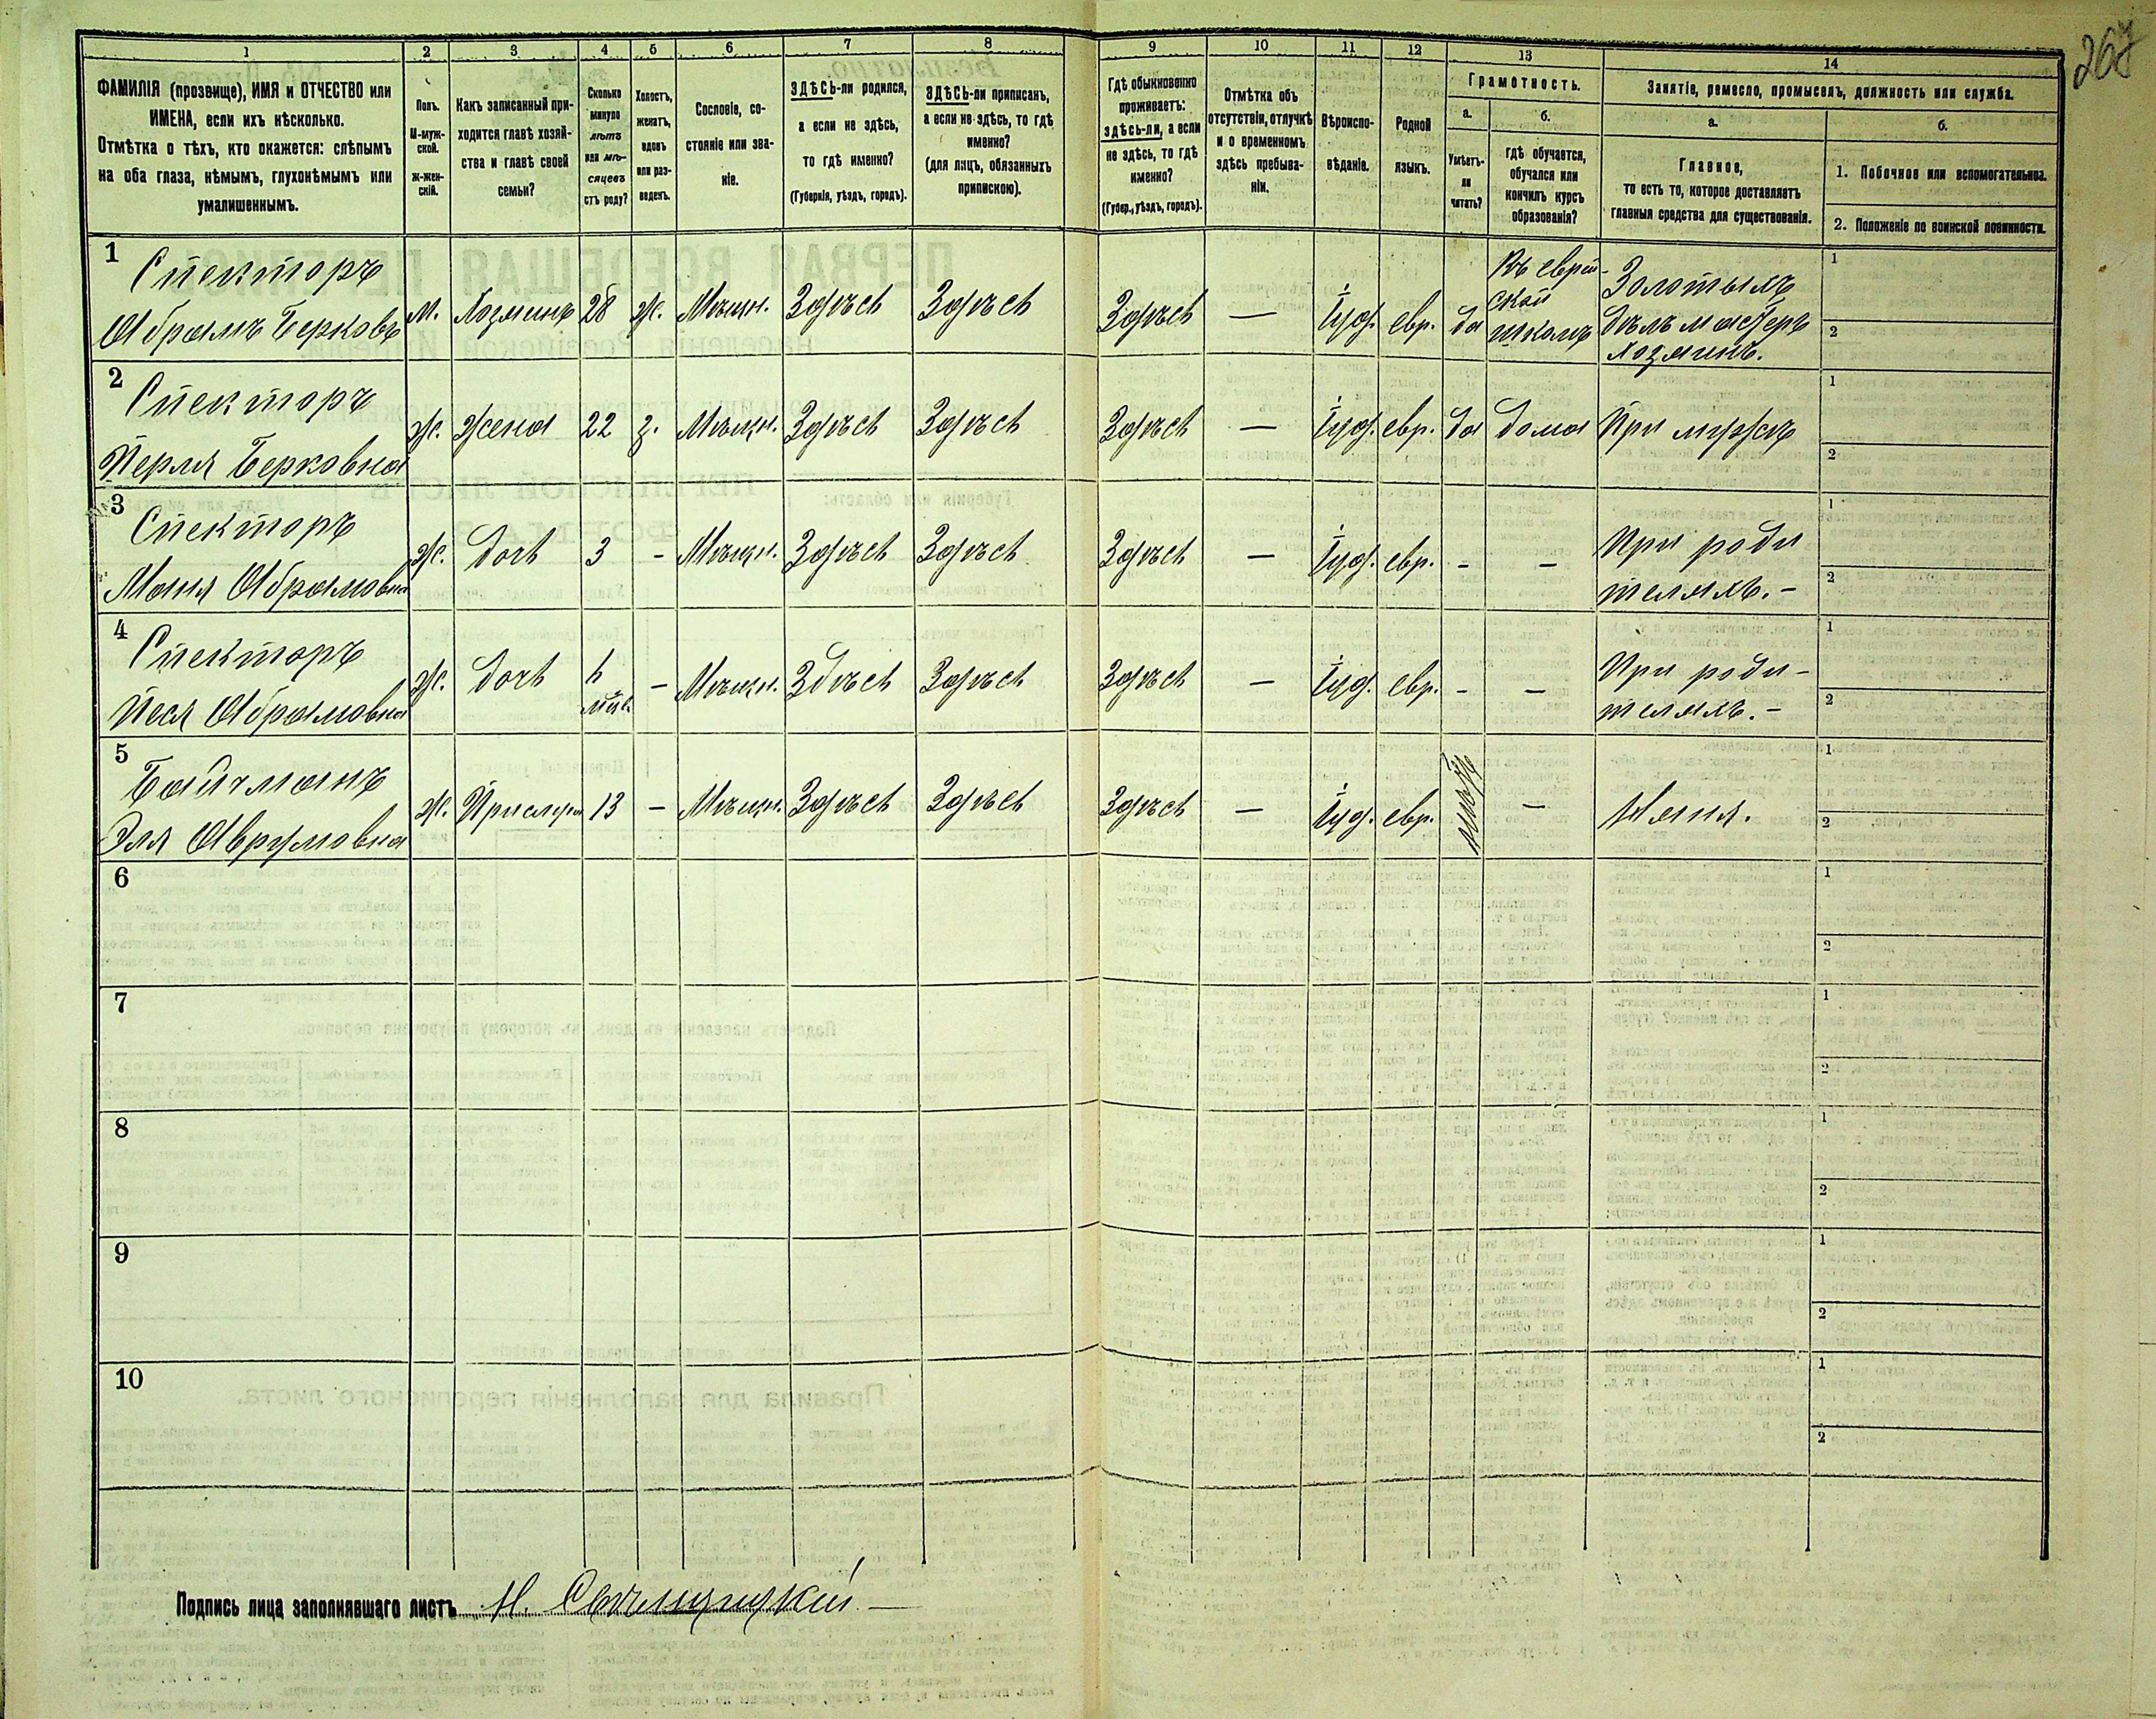 267
1 2 3 4 5 6 7 8 9 10 11 12 13 14
ФАМИЛІЯ (прозвище), ИМЯ и ОТЧЕСТВО или
ИМЕНА, если ихъ нѣсколько.
Отмѣтка о тѣхъ, кто окажется: слѣпымъ
на оба глаза, нѣмымъ, глухонѣмымъ или
умалишеннымъ.
Полъ.
М-муж-
ской.
Ж-жен-
скій.
Какъ записанный при-
ходится главѣ хозяй-
ства и главѣ своей
семьи?
Сколько
минуло
лѣтъ
или мѣ-
сяцевъ
отъ роду?
Холостъ,
женатъ,
вдовъ
или раз-
веденъ.
Сословіе, со-
стояніе или зва-
ніе.
ЗДѢСЬ-ли родился,
а если не здѣсь,
то гдѣ именно?
(Губернія, уѣздъ, городъ).
ЗДѢСЬ-ли приписанъ,
а если не здѣсь, то гдѣ
именно?
(для лицъ, обязанныхъ
припискою).
Гдѣ обыкновенно
проживаетъ:
здѣсь-ли, а если
не здѣсь, то гдѣ
именно?
(Губер., уѣздъ, городъ).
Отмѣтка объ
отсутствіи, отлучкѣ
и о временномъ
здѣсь пребыва-
ніи.
Вѣроиспо-
вѣданіе.
Родной
языкъ.
Грамотность.
а.
Умѣетъ-
ли
читать?
б.
гдѣ обучается,
обучался или
кончилъ курсъ
образованія?
Занятіе, ремесло, промыселъ, должность или служба.
а.
Главное,
то есть то, которое доставляетъ
главныя средства для существованія.
б.
1. Побочное или вспомогательное.
2. Положеніе по воинской повинности.
1
Спекторъ
Абрамъ Берковъ
м. Хозяинъ 28 ж. Мѣщн. Здѣсь Здѣсь Здѣсь — Іуд. евр. да
Въ еврей-
ской
школѣ
Золотыхъ
дѣлъ мастеръ
хозяинъ.
1
2
2
Спекторъ
Перля Берковна
ж. Жена 22 з. Мѣщн. Здѣсь Здѣсь Здѣсь — Іуд. евр. да дома При мужѣ
1
2
3
Спекторъ
Маня Абрамовна
ж. Дочь 3 - Мѣщн. Здѣсь Здѣсь Здѣсь — Іуд. евр. - -
При роди
теляхъ. -
1
2
4
Спекторъ
Песя Абрамовна
ж. Дочь
- Мѣщн. Здѣсь Здѣсь Здѣсь — Іуд. евр. - -
При роди-
теляхъ. -
1
2
5
Байчманъ
Эля Аврумовна
ж. Прислуга 13 - Мѣщн. Здѣсь Здѣсь Здѣсь — Іуд. евр. —
Няня.
1
2
6
1
2
7
1
2
8
1
2
9
1
2
10
1
2
Подпись лица заполнявшаго листъ